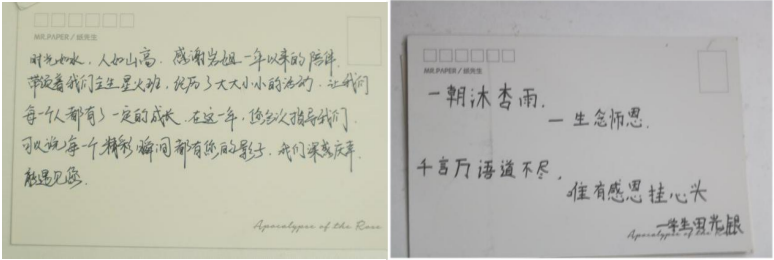 MR.PAPER / 纸先生
时光如水，人如山高。感谢岩姐一年以来的陪伴。
带领着我们主生星火班，经历了大大小小的活动，让我们
每一个人都有了一定的成长。在这一年，您多次指导我们，
可以说每一个精彩瞬间都有您的影子。我们深感庆幸
能遇见您。
Apocalypse of the Rose
MR.PAPER / 纸先生
一朝沐杏雨，
一生念师恩。
千言万语道不尽，
唯有感恩挂心头
一学生 田光银
Apocalypse of the Rose